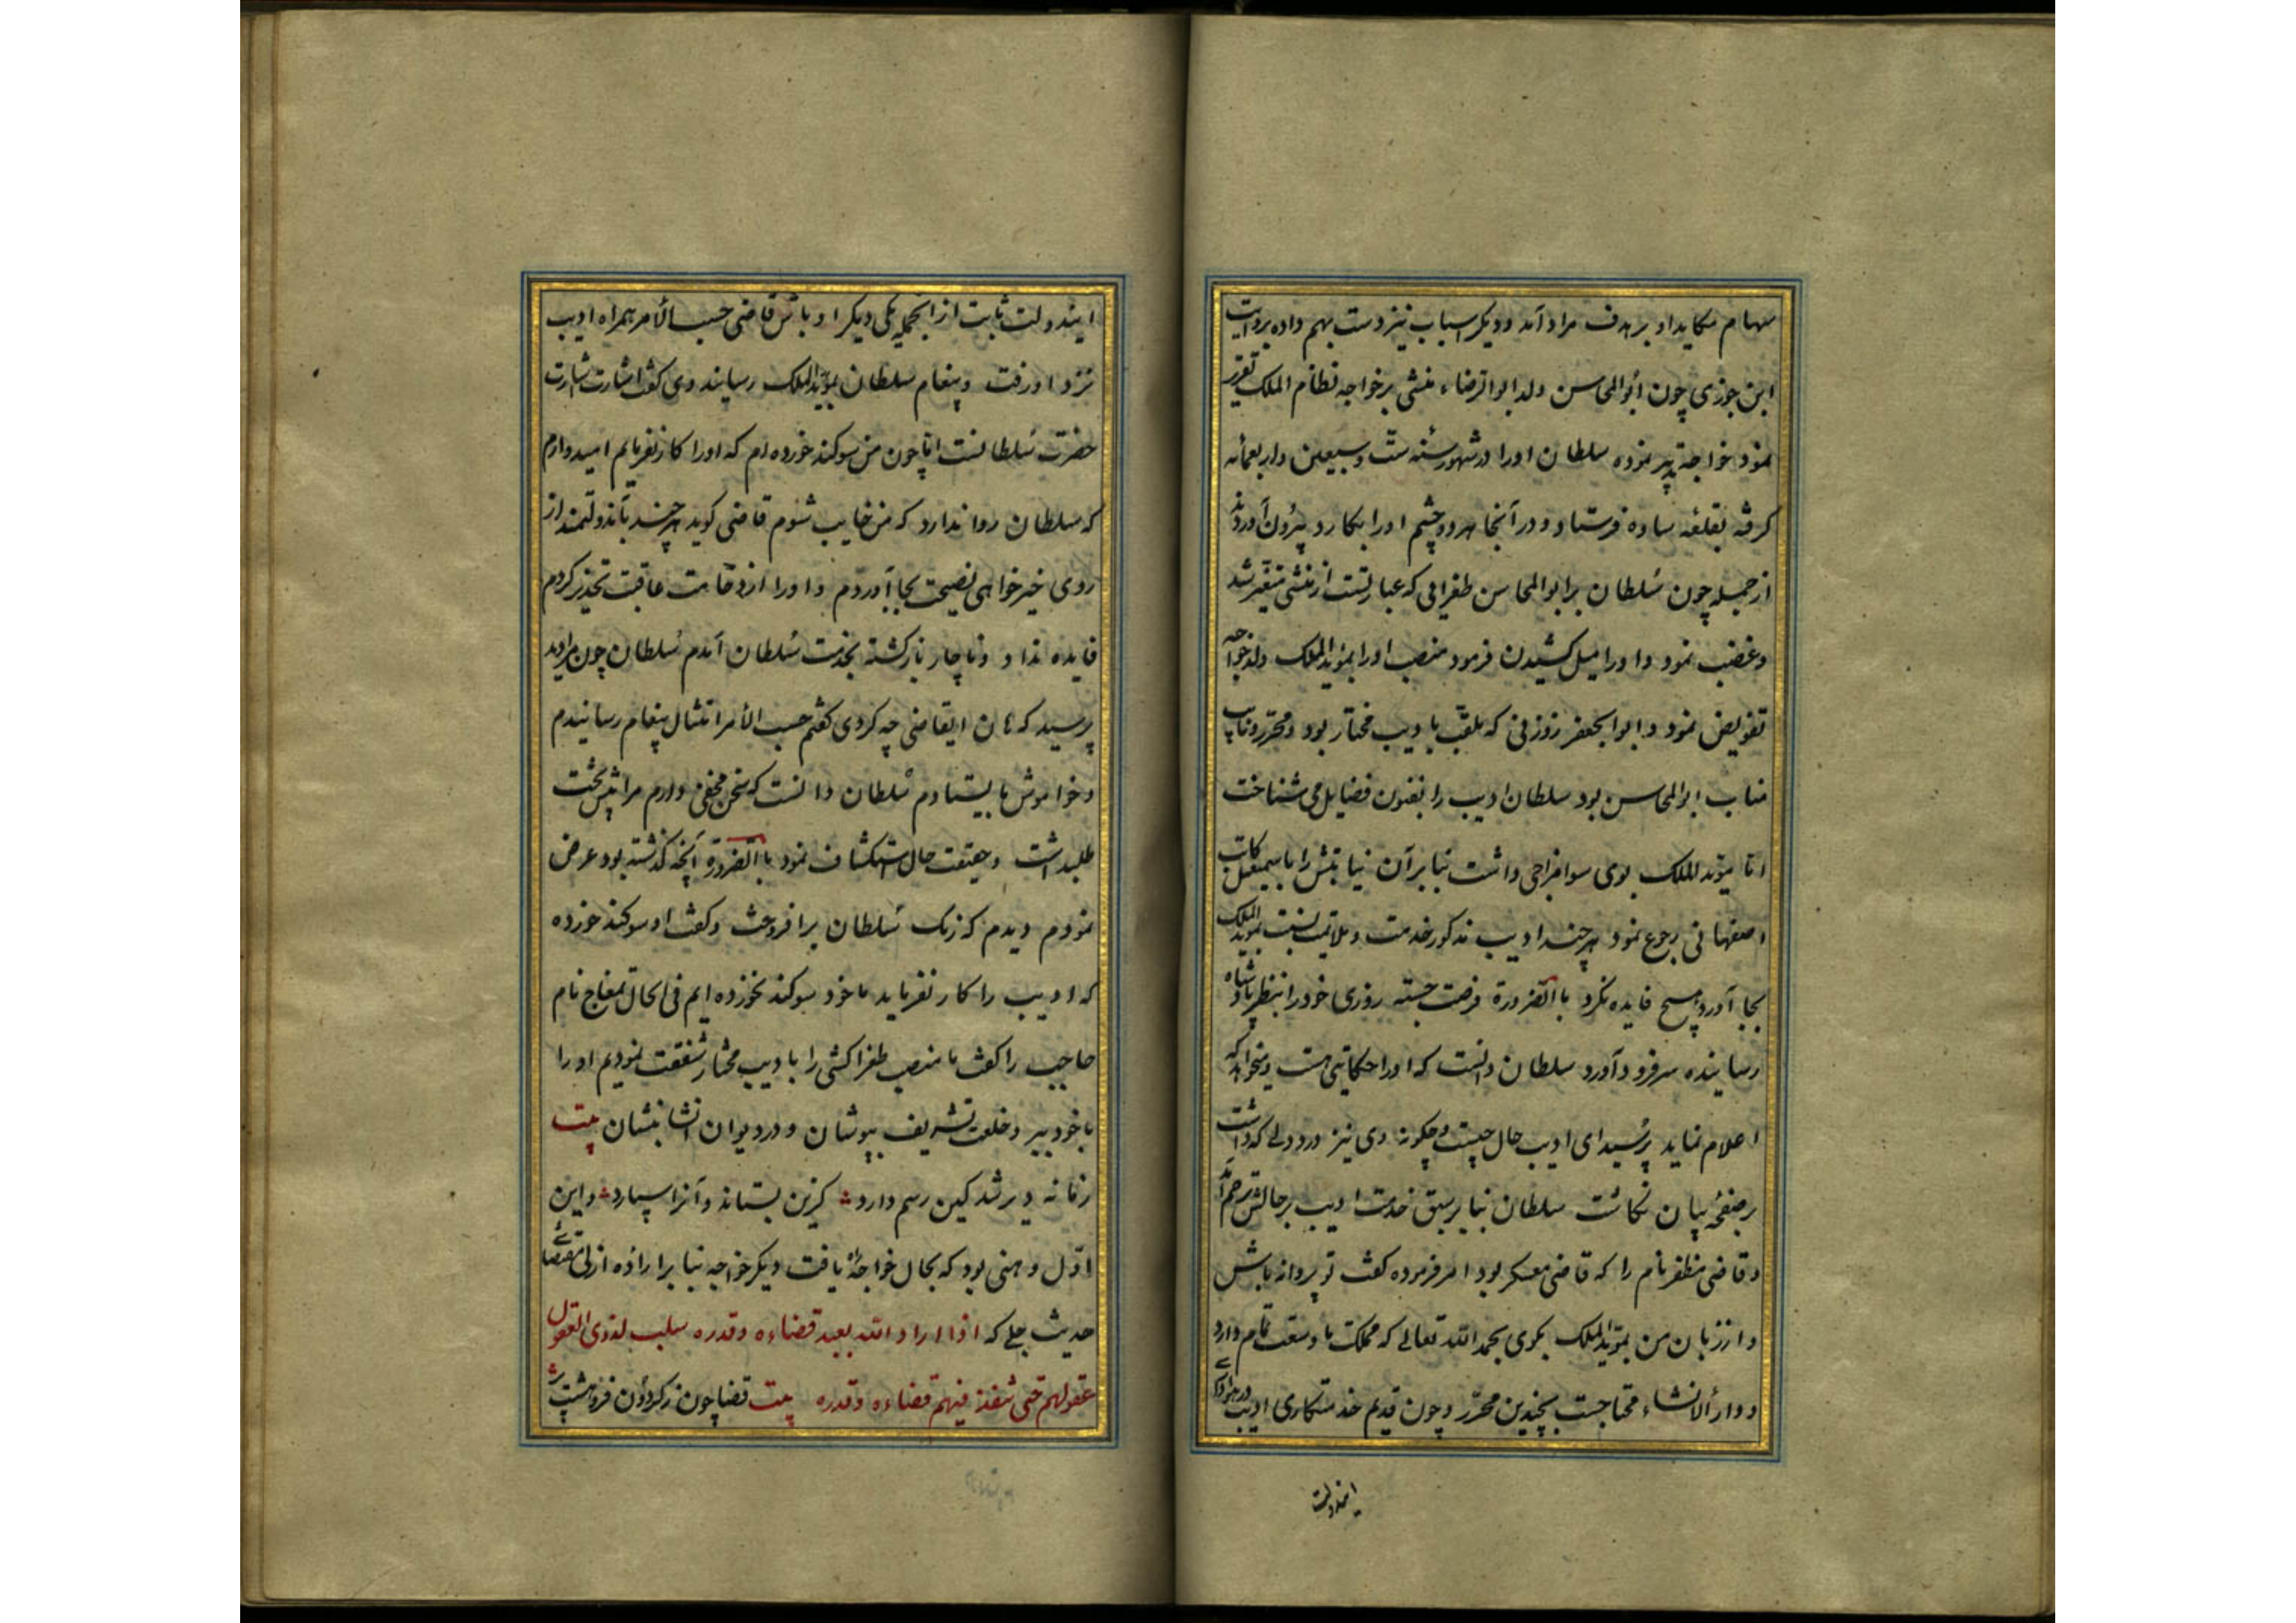 سهام مکاید او بر هدف مراد آمد و دیکر اسباب نیز دست بهم داده بروایت
ابن جوزی چون ابوالمحاسن ولد ابوالرضاء منشی بر خواجه نظام الملک تقریر
نمود خواجه تدبیر نموده سلطان اورا در شهور سنه ستّ و سبعین واربعمائه
کرفته بقلعه ساده فرستاد و در آنجا هر دو چشم اورا بکارد بیرون آوردند
از جمله چون سلطان بر ابوالمحاسن طغرائی که عبارتست از منشی متغیّر شد
وغضب نمود و اورا میل کشیدن فرمود منصب اورا بمؤیدالملک ولد خواجه
تفویض نمود و ابوالجعفر زوزنی که ملقّب بادیب مختار بود ومحرّر ونایب
مناب ابوالمحاسن بود سلطان ادیب را بفنون فضایل می شناخت
امّا مؤیدالملک بوی سوامزاجی داشت بنابرآن نیابتش را باسمعیل کاتب
اصفهانی رجوع نمود هرچند ادیب مذکور خدمت وملایمت بنسبت مؤیدالملک
بجا آورد هیچ فایده نکرد باالضرورة فرصت جسته روزی خود را بنظر پادشاه
رسانیده سرفرود آورد سلطان دانست که اورا حکایتی هست ومیخواهد که
اعلام نماید پرسید ای ادیب حال چیست وچکونه وی نیز درد دلی که داشت
بر صفحهٔ بیان نکاشت سلطان بنابر سبق خدمت ادیب برحالش ترحم آمد
وقاضی مظفر نام را که قاضی معسکر بود امر فرموده کفت تو پروانه باش
واز زبان من بمؤیدالملک بکوی بحمد الله تعالی که مملکت ما وسعت تمام دارد
ودار الانشاء محتاجست بچندین محرّر وچون قدیم خدمتکاری ادیب در هوای
ایندولت
ایندولت ثابت از آنجمله یکی دیکر او باش قاضی حسب الأمر همراه ادیب
نزد او رفت وپیغام سلطان بمؤیدالملک رسانید وی کفت اشارت بشارت
حضرت سلطانست امّا چون من سوکند خورده ام که اورا کار نفرمایم امیدوارم
که سلطان روا ندارد که من خایب شوم قاضی کوید هرچند بآندولتمند از
روی خیرخواهی نصیحت بجا آوردم واورا از وخامت عاقبت تحذیر کردم
فایده نداد وناچار بازکشته بخدمت سلطان آمدم سلطان چون مرا دید
پرسید که هان ایقاضی چه کردی کفتم حسب الأمر امتثال پیغام رسانیدم
وخواموش بایستادم سلطان دانست که سخن مخفی دارم مرا پیش تخت
طلبداشت وحقیقت حال استکشاف نمود باالضرورة آنچه کذشته بود عرض
نمودم دیدم که رنک سلطان برافروخت وکفت او سوکند خورده
که ادیب را کار نفرماید ما خود سوکند نخورده ایم فی الحال تمغاج نام
حاجب را کفت ما منصب طغراکشی را بادیب مختار شفقت نمودیم اورا
باخود ببر وخلعت تشریف بپوشان ودر دیوان انشا بنشان بیت
زمانه دیر شد کین رسم دارد کزین بستاند وآنرا سپارد واین
اوّل وهنی بود که بحال خواجهٔ یافت دیکر خواجه بنابر ارادهٔ ازلی مقتضای
حدیث جلی که اذا اراد الله بعبد قضاءه وقدره سلب لذوی العقول
عقولهم حتی ینفذ فیهم قضاءه وقدره بیت قضا چون ز کردون فروهشت پر